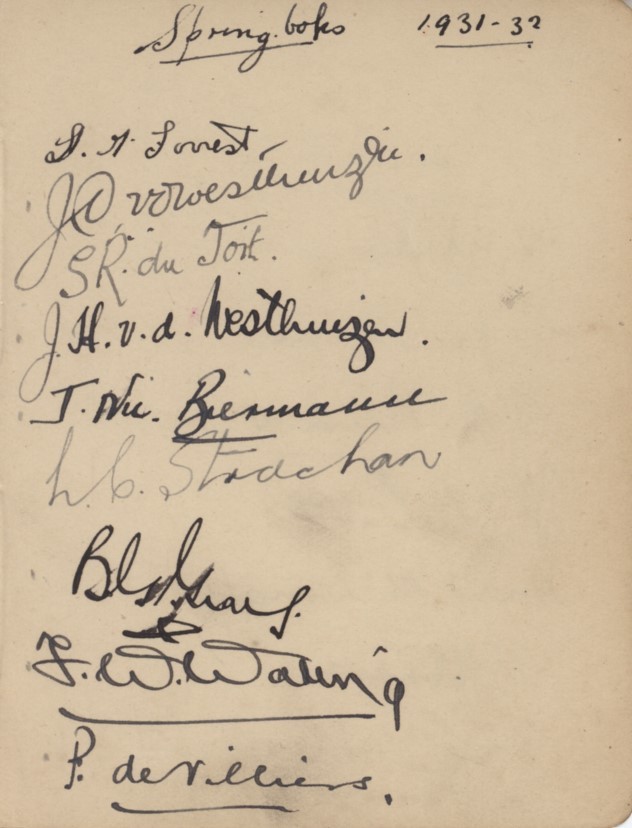 Springboks 1931-32
J.C. v.d. Westhuizen.
S.R. du Toit.
J.H.v.d. Westhuizen.
T. Nic. Biermann
L.C. Strachan
F.W. Waring
P. de Villiers.